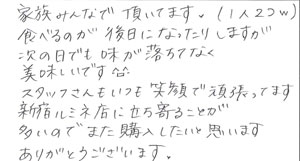 家族みんなで頂いてます。(1人2コw)
食べるのが後日になったりしますが
次の日でも味が落ちてなく
美味しいです^^
スタッフさんもいつも笑顔で頑張ってます
新宿ルミネ店に立ち寄ることが
多いのでまた購入したいと思います
ありがとうございます。